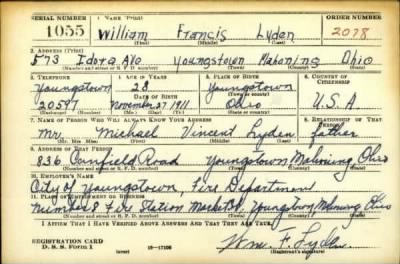 SERIAL NUMBER 1. NAME (Print) ORDER NUMBER
1055 William Francis Lyden 2078
(First) (Middle) (Last)
2. ADDRESS (Print)
573 Idora Ave Youngstown Mahoning Ohio
(Number and street or R. F. D. number) (Town) (County) (State)
3. TELEPHONE 4. AGE IN YEARS 5. PLACE OF BIRTH 6. COUNTRY OF CITIZENSHIP
Youngstown 28 Youngstown
DATE OF BIRTH (Town or county)
20597 November 27 1911 Ohio U.S.A
(Exchange) (Number) (Mo.) (Day) (Yr.) (State or country)
7. NAME OF PERSON WHO WILL ALWAYS KNOW YOUR ADDRESS 8. RELATIONSHIP OF THAT PERSON
Mr. Michael Vincent Lyden father
(Mr., Mrs., Miss) (First) (Middle) (Last)
9. ADDRESS OF THAT PERSON
836 Canfield Road Youngstown Mahoning Ohio
(Number and street or R. F. D. number) (Town) (County) (State)
10. EMPLOYER'S NAME
City of Youngstown, Fire Department
11. PLACE OF EMPLOYMENT OR BUSINESS
Number 8 Fire Station Market St, Youngstown Mahoning Ohio
(Number and street or R. F. D. number) (Town) (County) (State)
I AFFIRM THAT I HAVE VERIFIED ABOVE ANSWERS AND THAT THEY ARE TRUE.
REGISTRATION CARD
D. S. S. Form 1 (over) 16-17105 Wm. F. Lyden
(Registrant's signature)